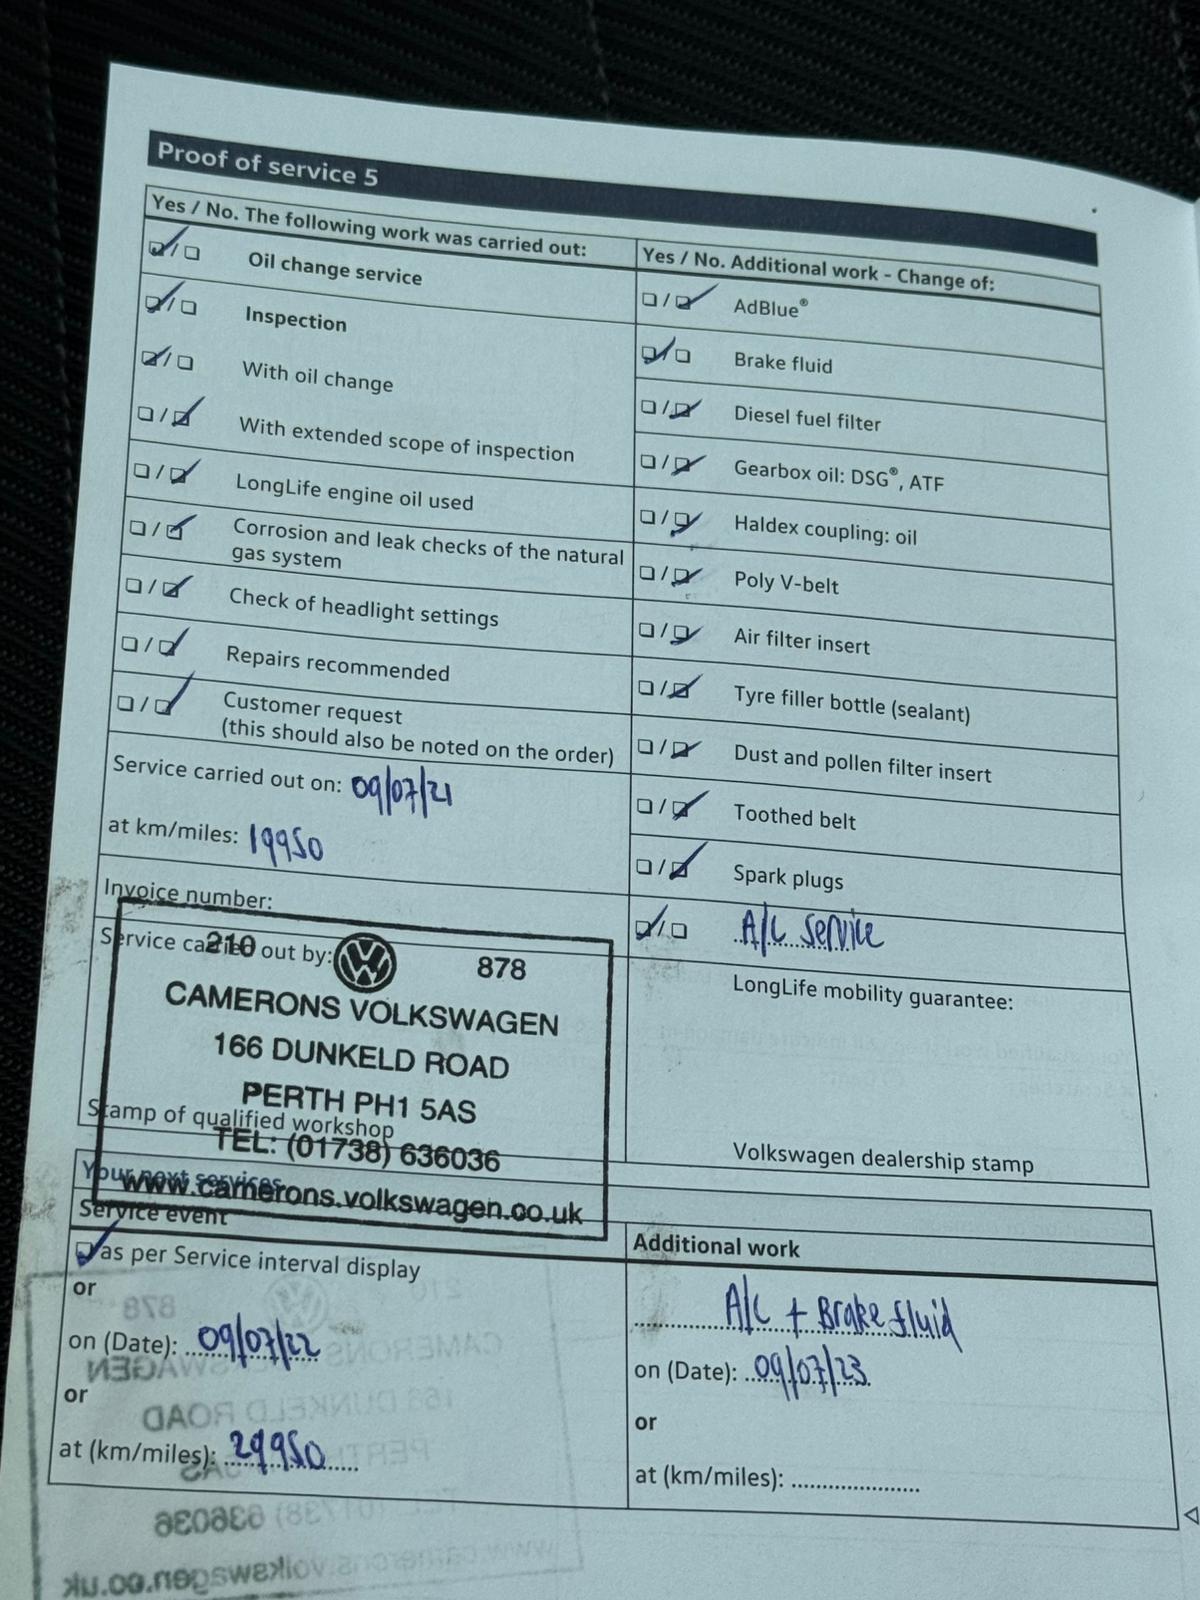 Proof of service 5
Yes / No. The following work was carried out:
Oil change service
Inspection
With oil change
With extended scope of inspection
LongLife engine oil used
Corrosion and leak checks of the natural
gas system
Check of headlight settings
Repairs recommended
Customer request
(this should also be noted on the order)
Service carried out on: 09/07/21
at km/miles: 19950
Invoice number:
Service carried out by:
210 878
CAMERONS VOLKSWAGEN
166 DUNKELD ROAD
PERTH PH1 5AS
Stamp of qualified workshop
TEL: (01738) 636036
www.camerons.volkswagen.co.uk
Yes / No. Additional work - Change of:
AdBlue®
Brake fluid
Diesel fuel filter
Gearbox oil: DSG®, ATF
Haldex coupling: oil
Poly V-belt
Air filter insert
Tyre filler bottle (sealant)
Dust and pollen filter insert
Toothed belt
Spark plugs
A/C Service
LongLife mobility guarantee:
Volkswagen dealership stamp
Your next services
Service event
as per Service interval display
or
on (Date): 09/07/22
or
at (km/miles): 29950
Additional work
A/C + Brake fluid
on (Date): 09/07/23
or
at (km/miles):